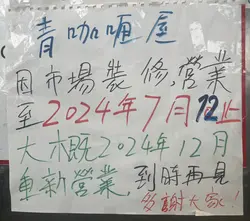 青咖喱屋
因市場裝修,營業
至2024年7月12止
大概2024年12月
重新營業,到時再見
多謝大家!